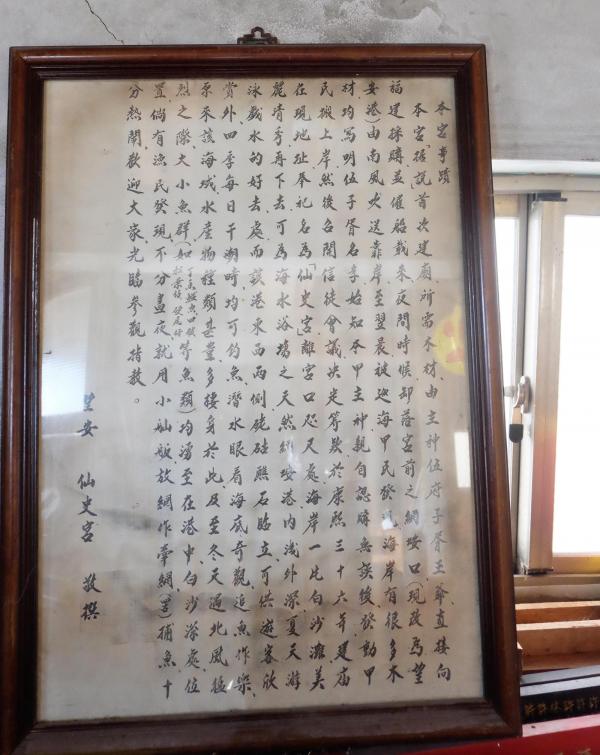 本宮事蹟
本宮「據說」首次建廟所需木材由主神伍府子胥王爺直接向
福建採購並僱船載來夜間時候卸落宮前之網垵口(現改為望
安港)由南風吹送靠岸至翌晨被近海甲民發現海岸有很多木
材均寫明伍子胥名字始知本甲主神親自認購無誤後發動甲
民搬上岸然後召開信徒會議決定籌款於康熙三十六年建廟
在現地址奉祀名為「仙史宮」離宮口咫尺處海岸一片白沙灘美
麗清秀再下去可為海水浴場之天然網垵港內淺外深夏天游
泳戲水的好去處而該港東西兩側硓𥑮礁石豎立可供遊客欣
賞外四季每日干潮時均可釣魚潛水眼看海底奇觀追魚作樂
原來該海域水產物種類甚豐多棲身於此及至冬天遇北風猛
烈之際大小魚群(如等魚類)均湧至在港中白沙深處位
置倘有漁民發現不分晝夜就用小舢舨放網作牽網(罟)捕魚十
分熱鬧歡迎大家光臨參觀指教。
望安 仙史宮 敬撰